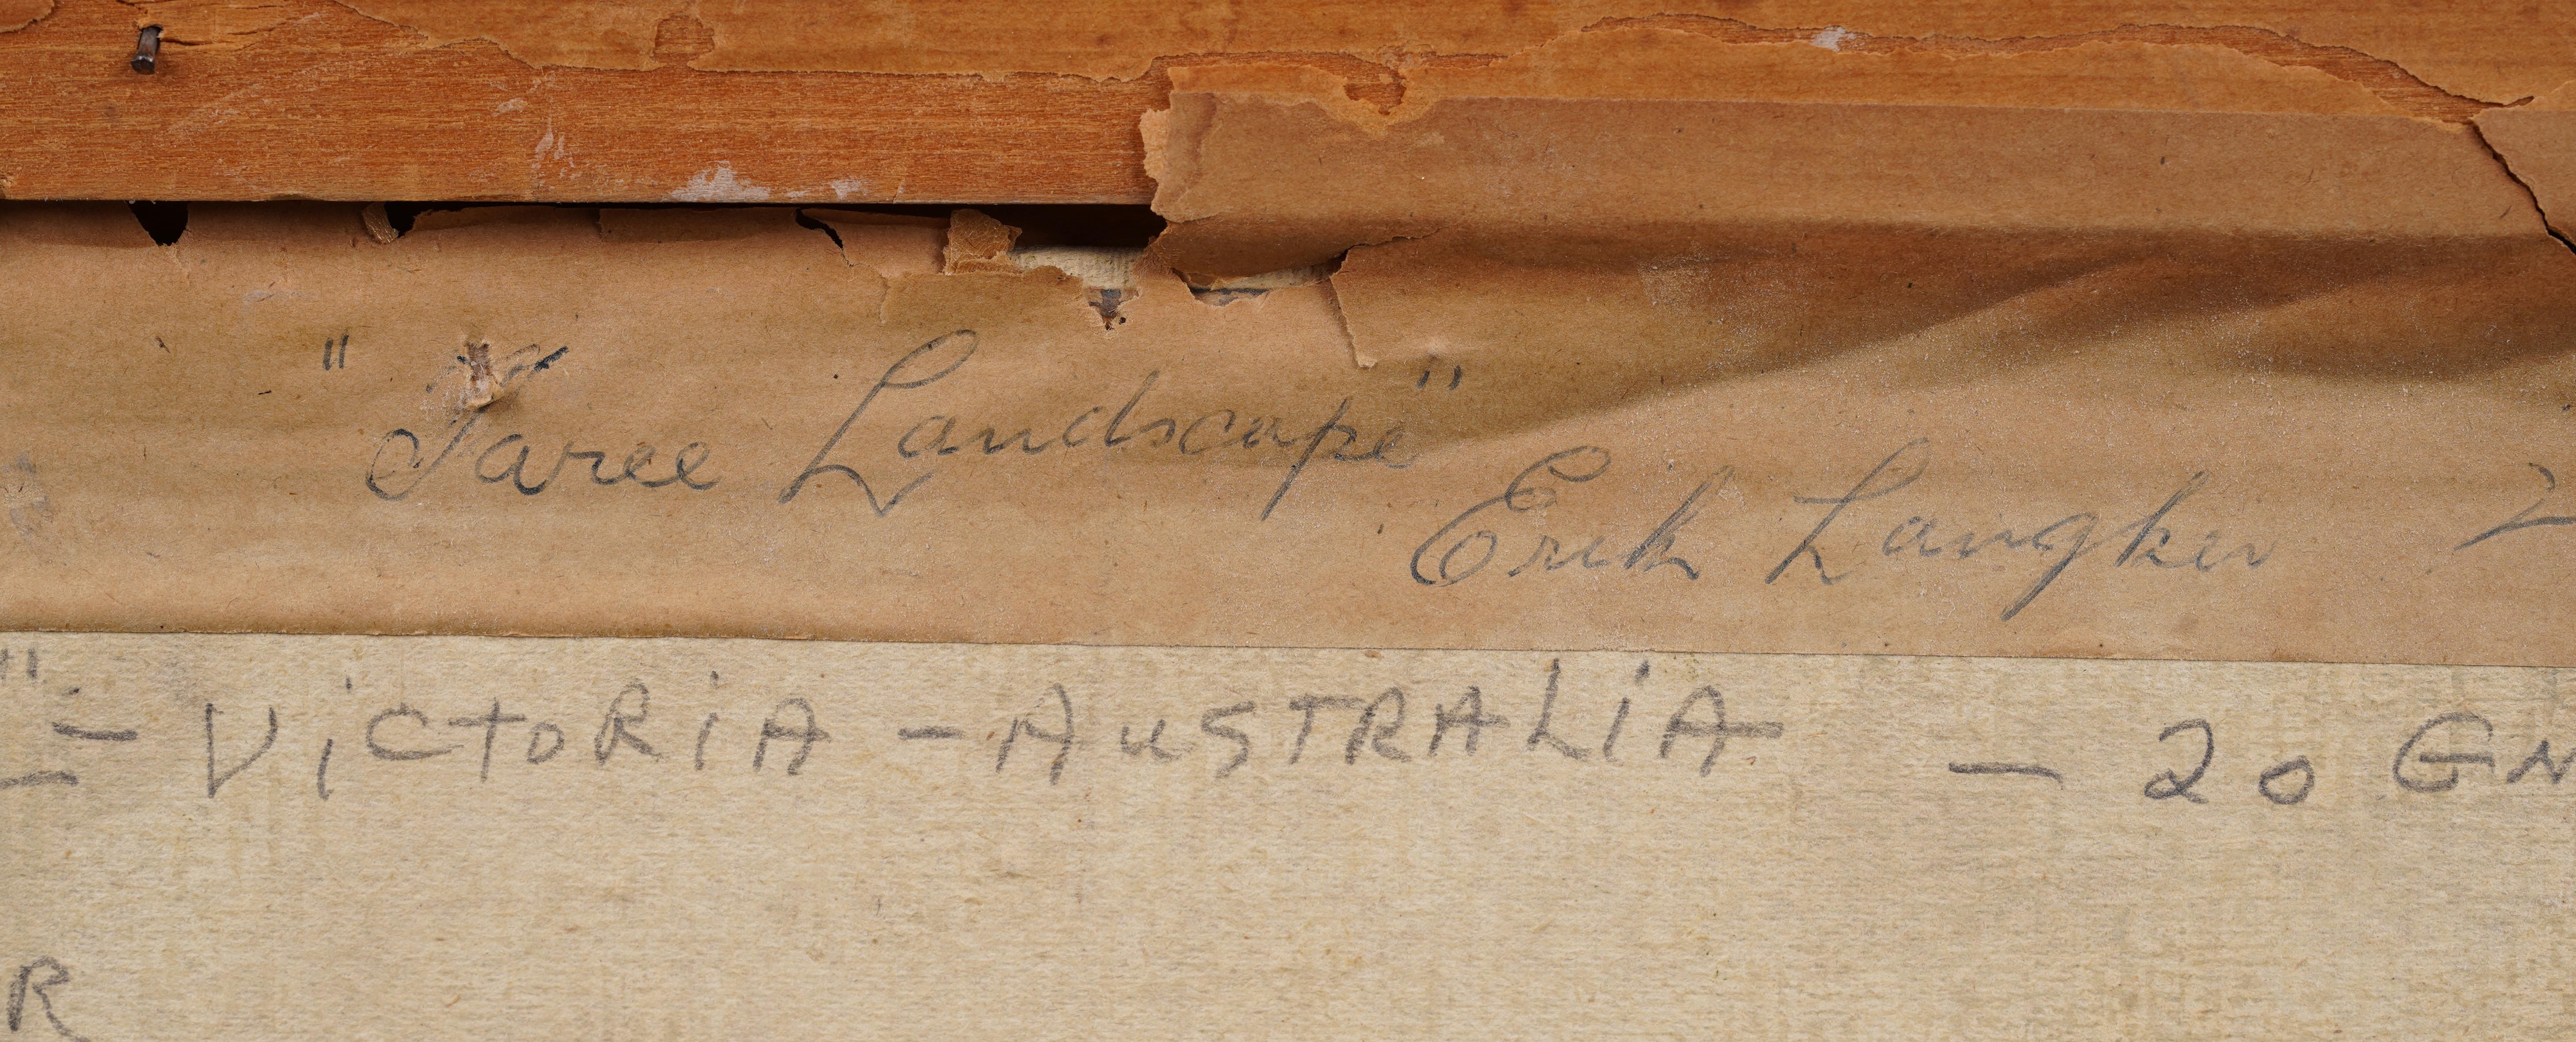 "Taree Landscape"
Erik Langker
" - ViCTORiA - AuSTRALiA - 20 GN
R